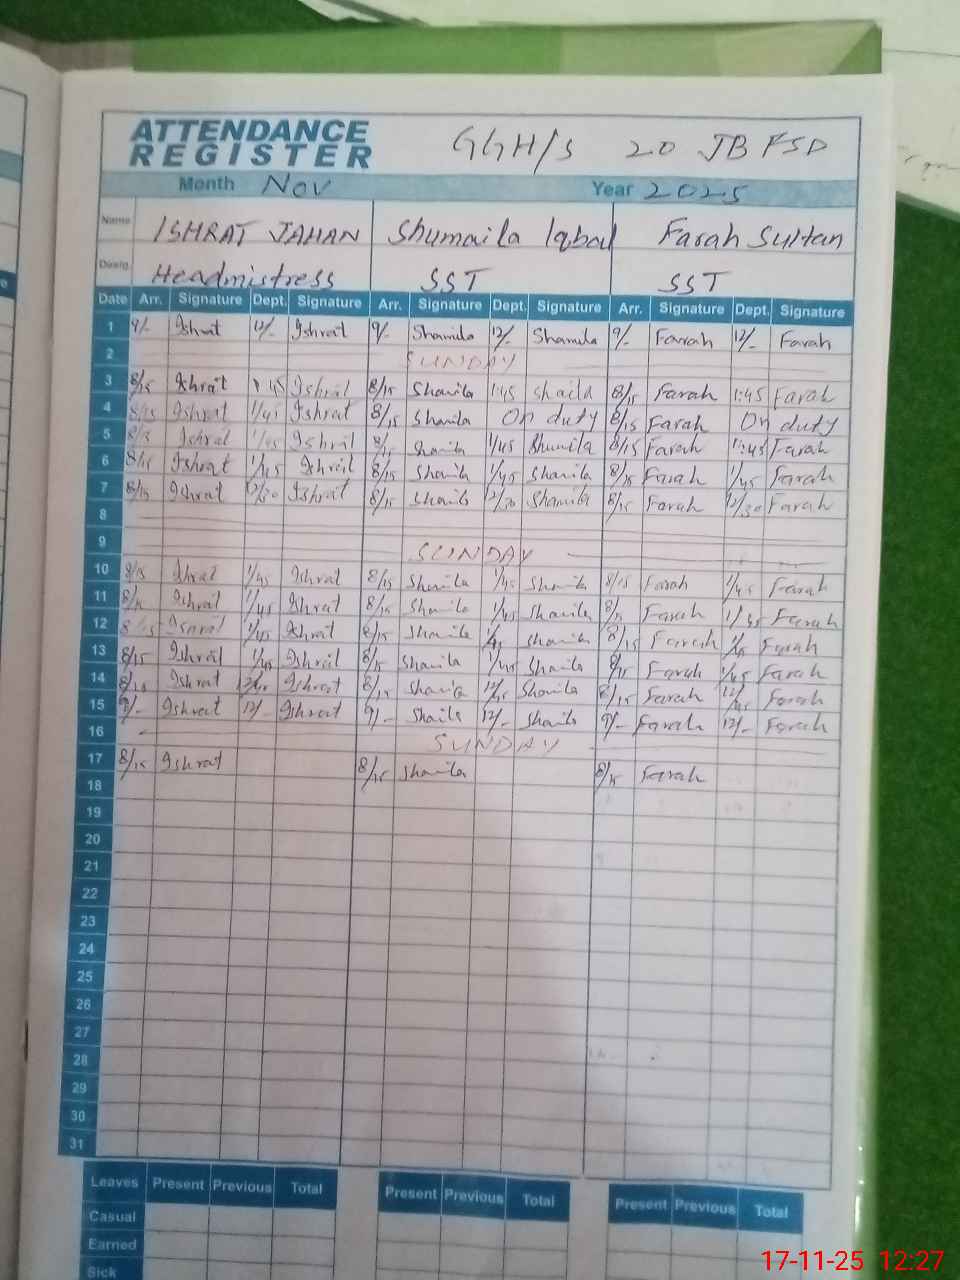 ATTENDANCE
REGISTER
GGH/S 20 JB FSD
Month Nov Year 2025
Name ISHRAT JAHAN Shumaila Iqbal Farah Sultan
Desig. Headmistress SST SST
Date Arr. Signature Dept. Signature Arr. Signature Dept. Signature Arr. Signature Dept. Signature
1 9/- Ishrat 12/- Ishrat 9/- Shamila 12/- Shamila 9/- Farah 12/- Farah
2 SUNDAY
3 8/15 Ishrat 1:45 Ishrat 8/15 Shamila 1:45 8/15 Farah 1:45 Farah
4 8/15 Ishrat 1/45 Ishrat 8/15 Shamila On duty 8/15 Farah On duty
5 Ishrat 1/45 Ishrat 8/15 1/45 Shumila 8/15 Farah 1:45 Farah
6 8/15 Ishrat 1/45 Ishrat 8/15 1/45 8/15 Farah 1/45 Farah
7 8/15 Ishrat 12/30 Ishrat 8/15 12/30 8/15 Farah 12/30 Farah
8
9 SUNDAY
10 8/15 Ishrat 1/45 Ishrat 8/15 1/45 8/15 Farah 1/45 Farah
11 8/15 Ishrat 1/45 Ishrat 8/15 1/45 8/15 Farah Farah
12 8/15 Ishrat 1/45 Ishrat 8/15 1/45 8/15 Farah 1/45 Farah
13 8/15 Ishrat 1/45 Ishrat 8/15 1/45 8/15 Farah 1/45 Farah
14 8/15 Ishrat Ishrat 8/15 12/45 8/15 Farah 12/45 Farah
15 9/- Ishrat 12/- Ishrat 9/- 12/- 9/- Farah 12/- Farah
16 SUNDAY
17 8/15 Ishrat 8/15 8/15 Farah
18
19
20
21
22
23
24
25
26
27
28
29
30
31
Leaves Present Previous Total Present Previous Total Present Previous Total
Casual
Earned
Sick
17-11-25 12:27